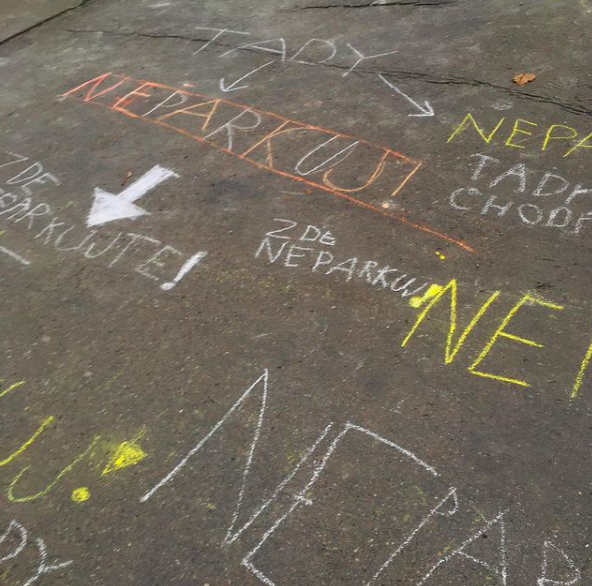 TADY
NEPARKUJ!
NEPA
TADY
CHODÍ
ZDE
NEPARKUJTE!
ZDE
NEPARKUJ!
NE
U!
NEPAR